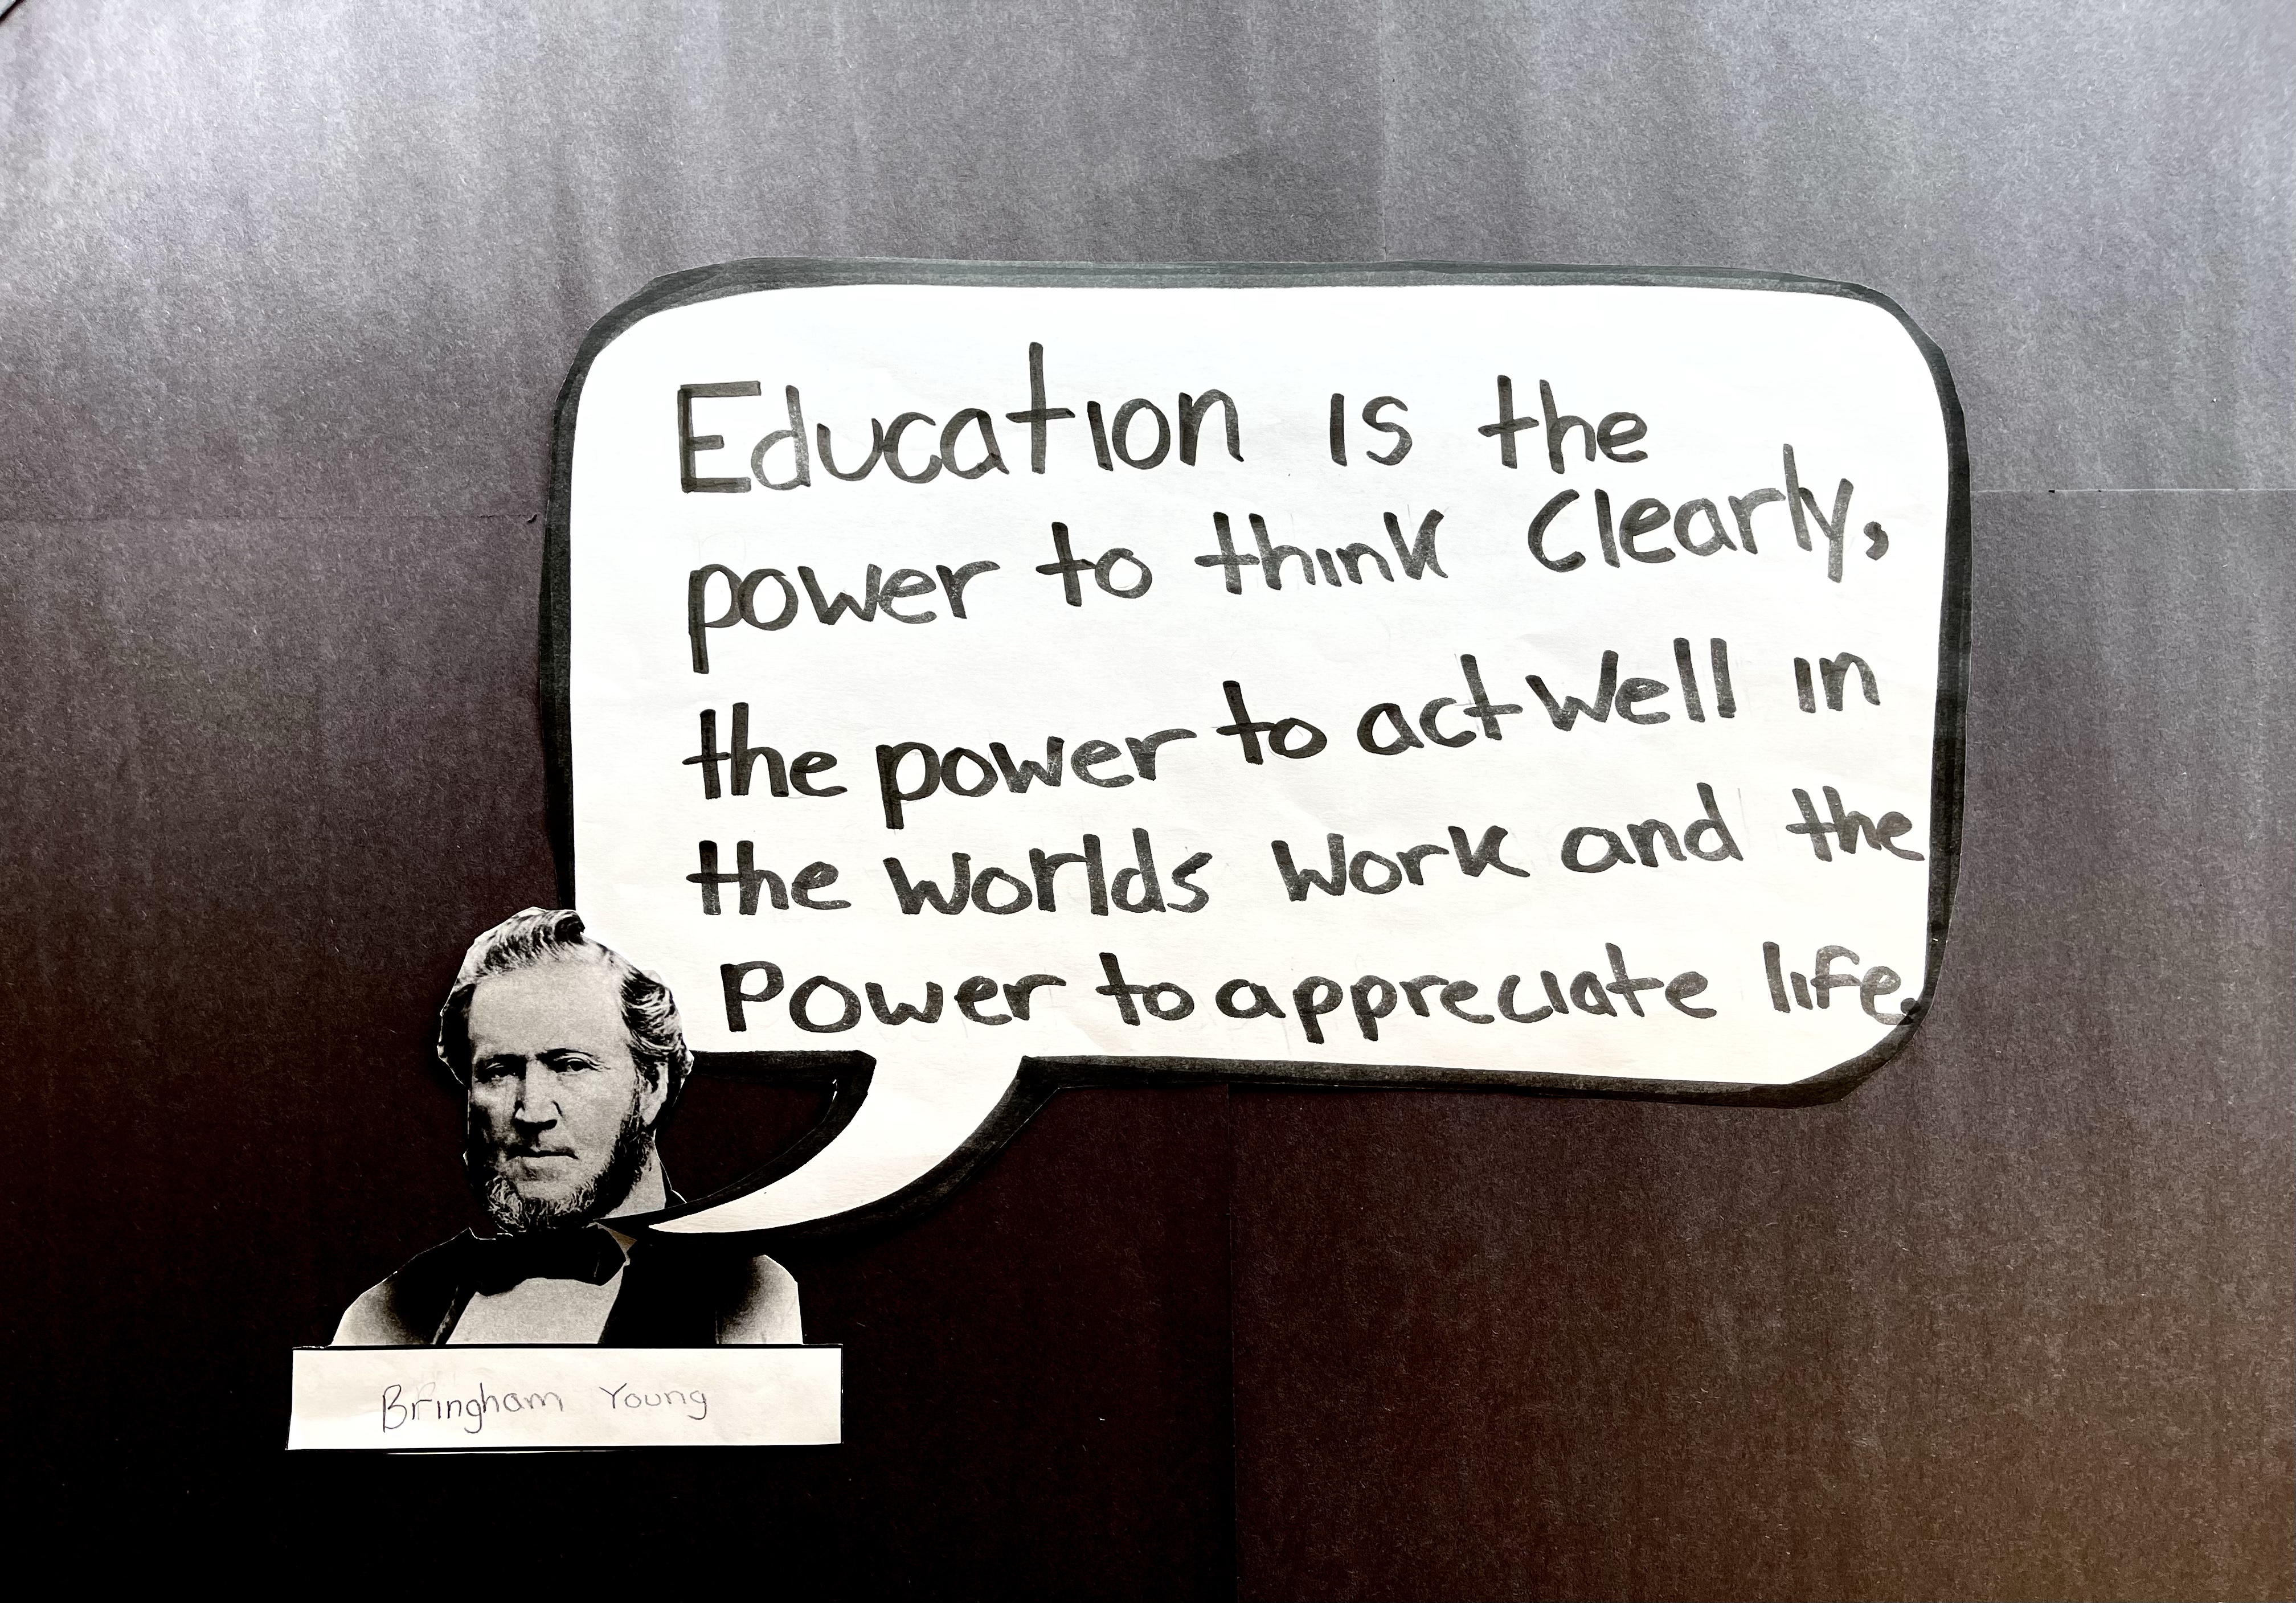 Education is the
power to think Clearly,
the power to act well in
the worlds work and the
Power to appreciate life.
Bringham Young